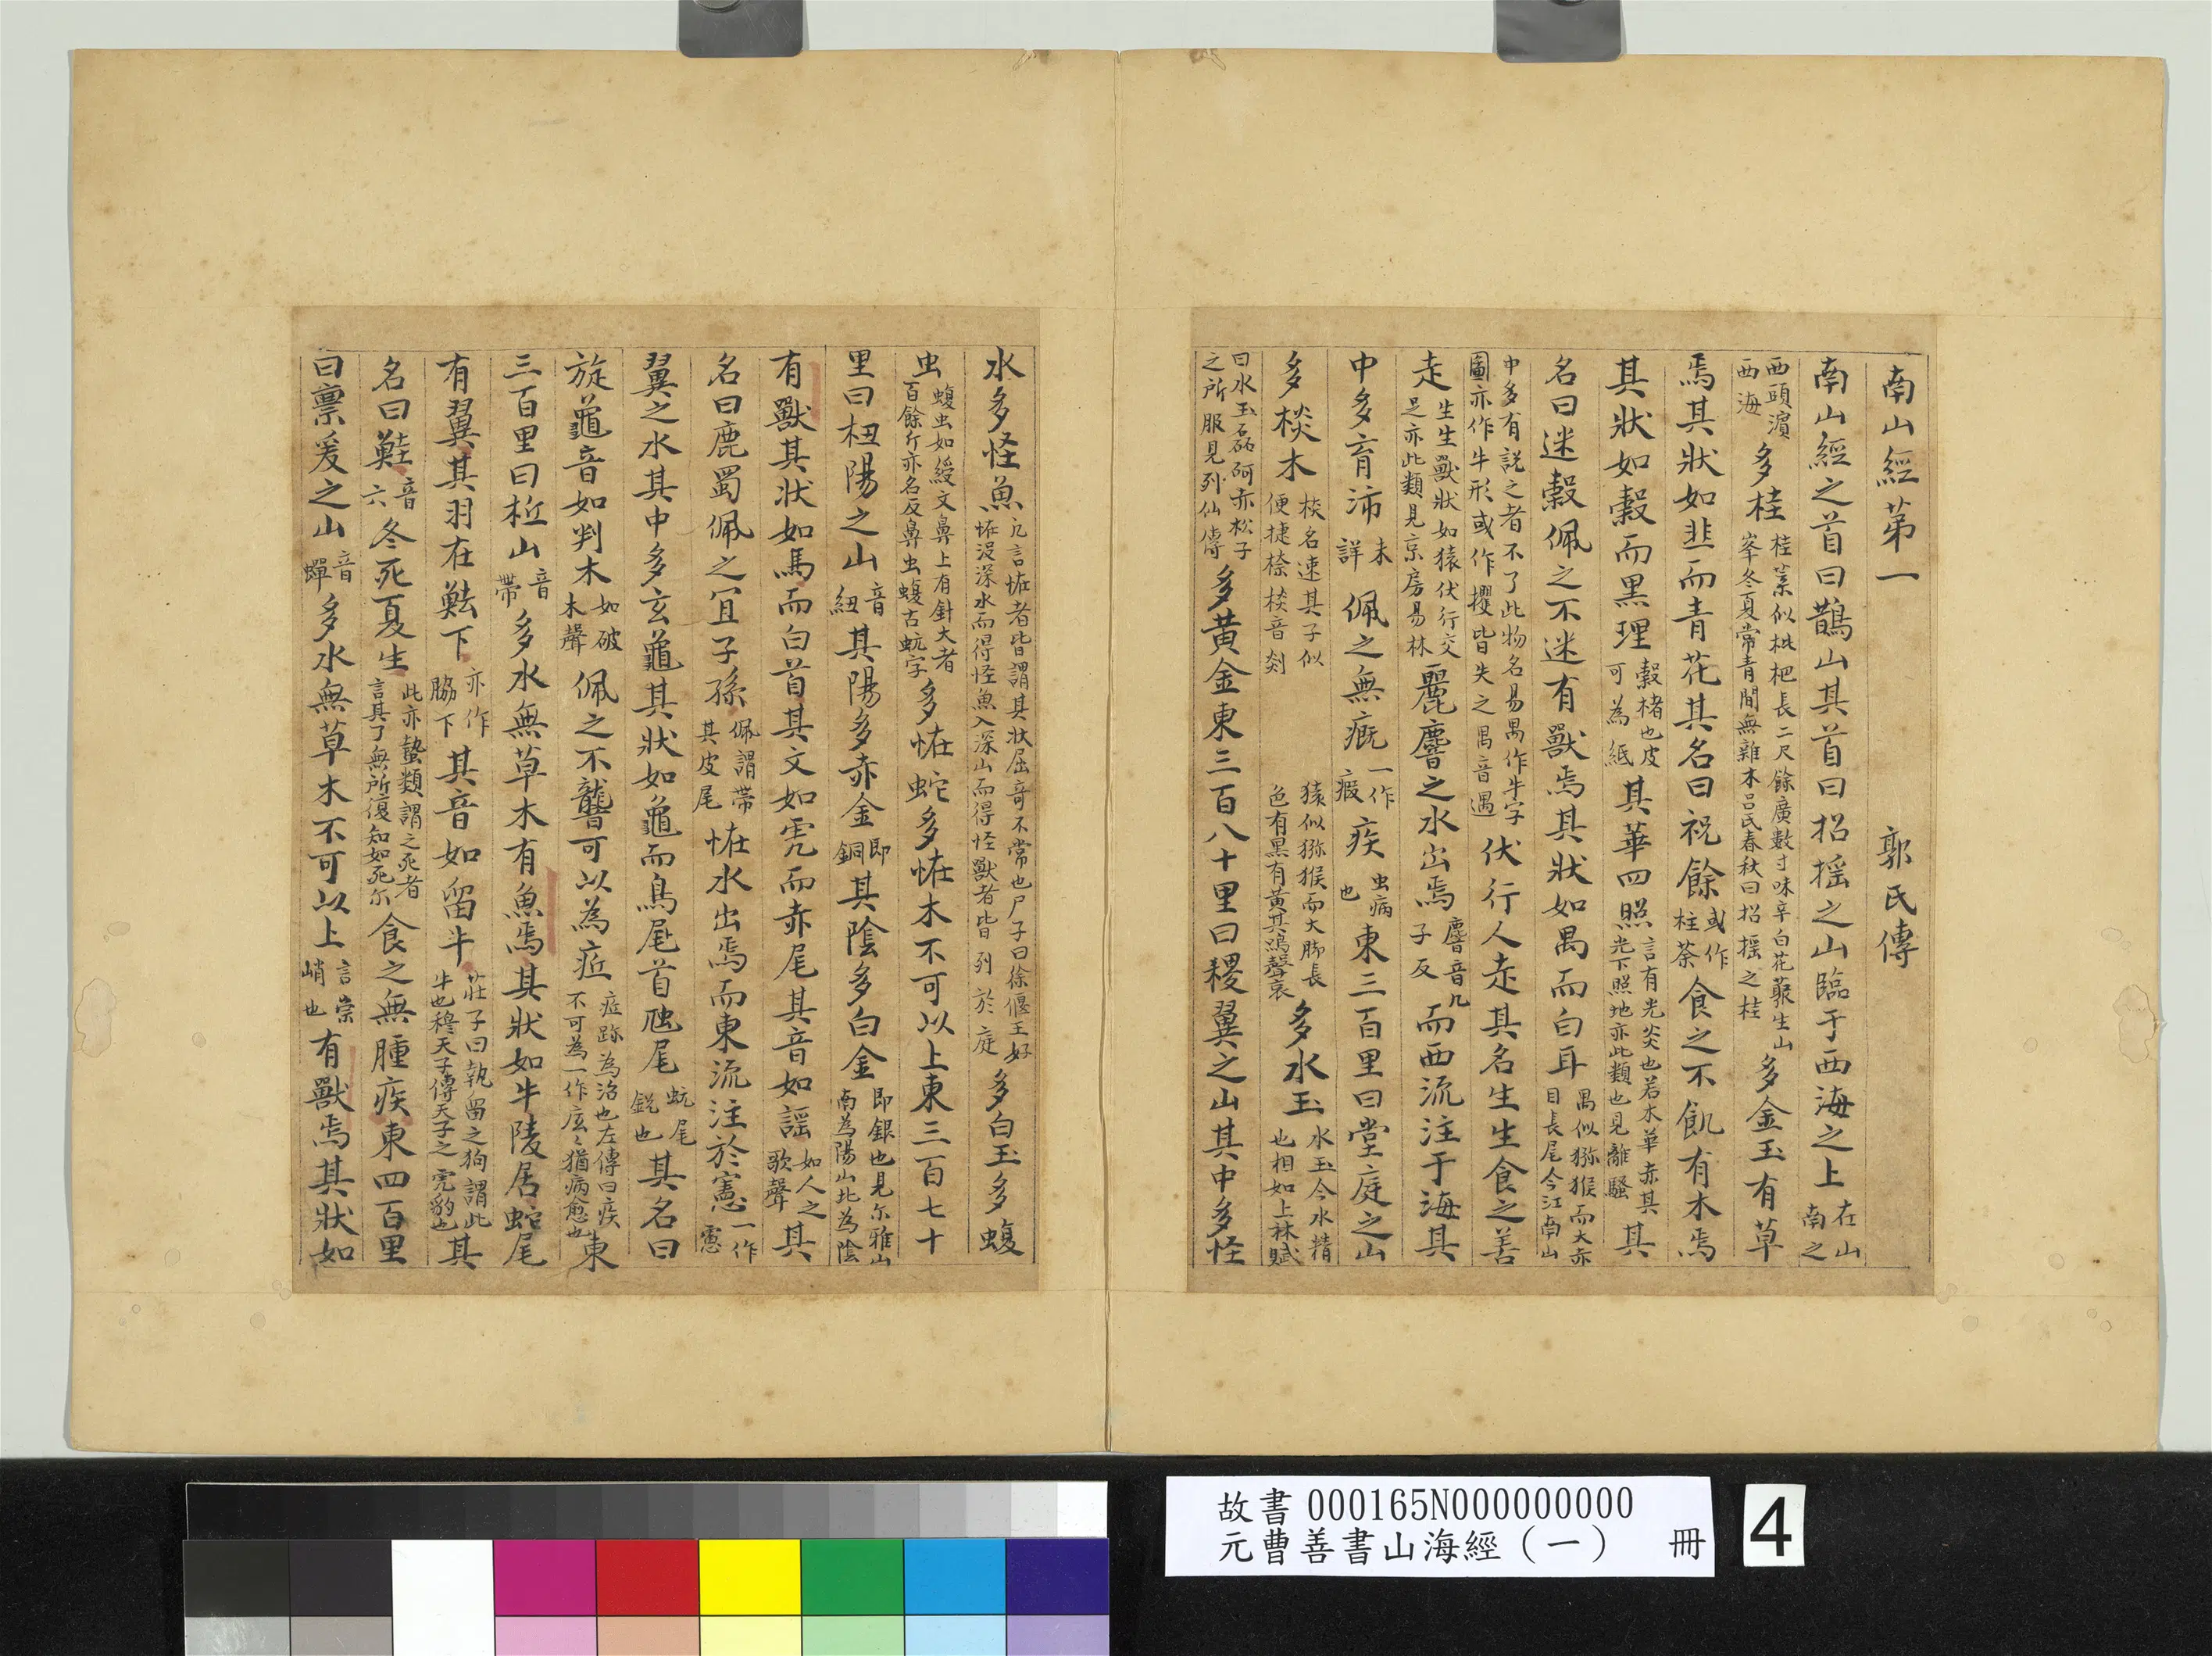 南山經第一 郭氏傳
南山經之首曰鵲山其首曰招揺之山臨于西海之上 在山南之
西頭濵西海 多桂 桂葉似枇杷長二尺餘廣數寸味辛白花藂生山峯冬夏常青間無雜木吕氏春秋曰招揺之桂 多金玉有草
焉其狀如韭而青花其名曰祝餘 或作柱荼 食之不飢有木焉
其狀如榖而黒理 榖楮也皮可為紙 其華四照 言有光炎也若木華赤其光下照地亦此類也見離騷 其
名曰迷榖佩之不迷有獸焉其狀如禺而白耳 禺似獼猴而大赤目長尾今江南山
中多有説之者不了此物名易禺作牛字圖亦作牛形或作㹱皆失之禺音遇 伏行人走其名生生食之善
走 生生獸狀如猿伏行交足亦此類見京房易林 麗麐之水出焉 麐音几子反 而西流注于海其
中多育沛 未詳 佩之無瘕 一作瘕 疾 虫病也 東三百里曰堂庭之山
多棪木 棪名速其子似便捷㮈棪音剡 猿似獼猴而大脚長色有黒有黄其鳴聲哀 多水玉 水玉今水精也相如上林賦
曰水玉磊砢赤松子之所服見列仙傳 多黄金東三百八十里曰稷翼之山其中多怪
水多怪魚 凡言恠者皆謂其狀屈竒不常也尸子曰徐偃王好恠没深水而得怪魚入深山而得怪獸者皆列於庭 多白玉多蝮
虫 蝮虫如綬文鼻上有針大者百餘斤亦名反鼻虫蝮古蚖字 多恠蛇多恠木不可以上東三百七十
里曰杻陽之山 音紐 其陽多赤金 即銅 其陰多白金 即銀也見尓雅山南為陽山北為陰
有獸其狀如馬而白首其文如虎而赤尾其音如謡 如人之歌聲 其
名曰鹿蜀佩之冝子孫 佩謂帶其皮尾 恠水出焉而東流注於憲 一作㥶
翼之水其中多玄龜其狀如龜而鳥尾首虺尾 蚖尾鋭也 其名曰
旋龜音如判木 如破木聲 佩之不聾可以為疷 疷跡為治也左傳曰疾不可為一作疷〻猶病愈也 東
三百里曰柢山 音帶 多水無草木有魚焉其狀如牛陵居蛇尾
有翼其羽在魼下 亦作脇下 其音如留牛 莊子曰執留之狗謂此牛也穆天子傳天子之虎豹也 其
名曰鯥 音六 冬死夏生 此亦蟄類謂之死者言其了無所復知如死尓 食之無腫疾東四百里
曰亶爰之山 音蟬 多水無草木不可以上 言崇峭也 有獸焉其狀如
故書 000165N000000000
元曹善書山海經（一） 冊
4